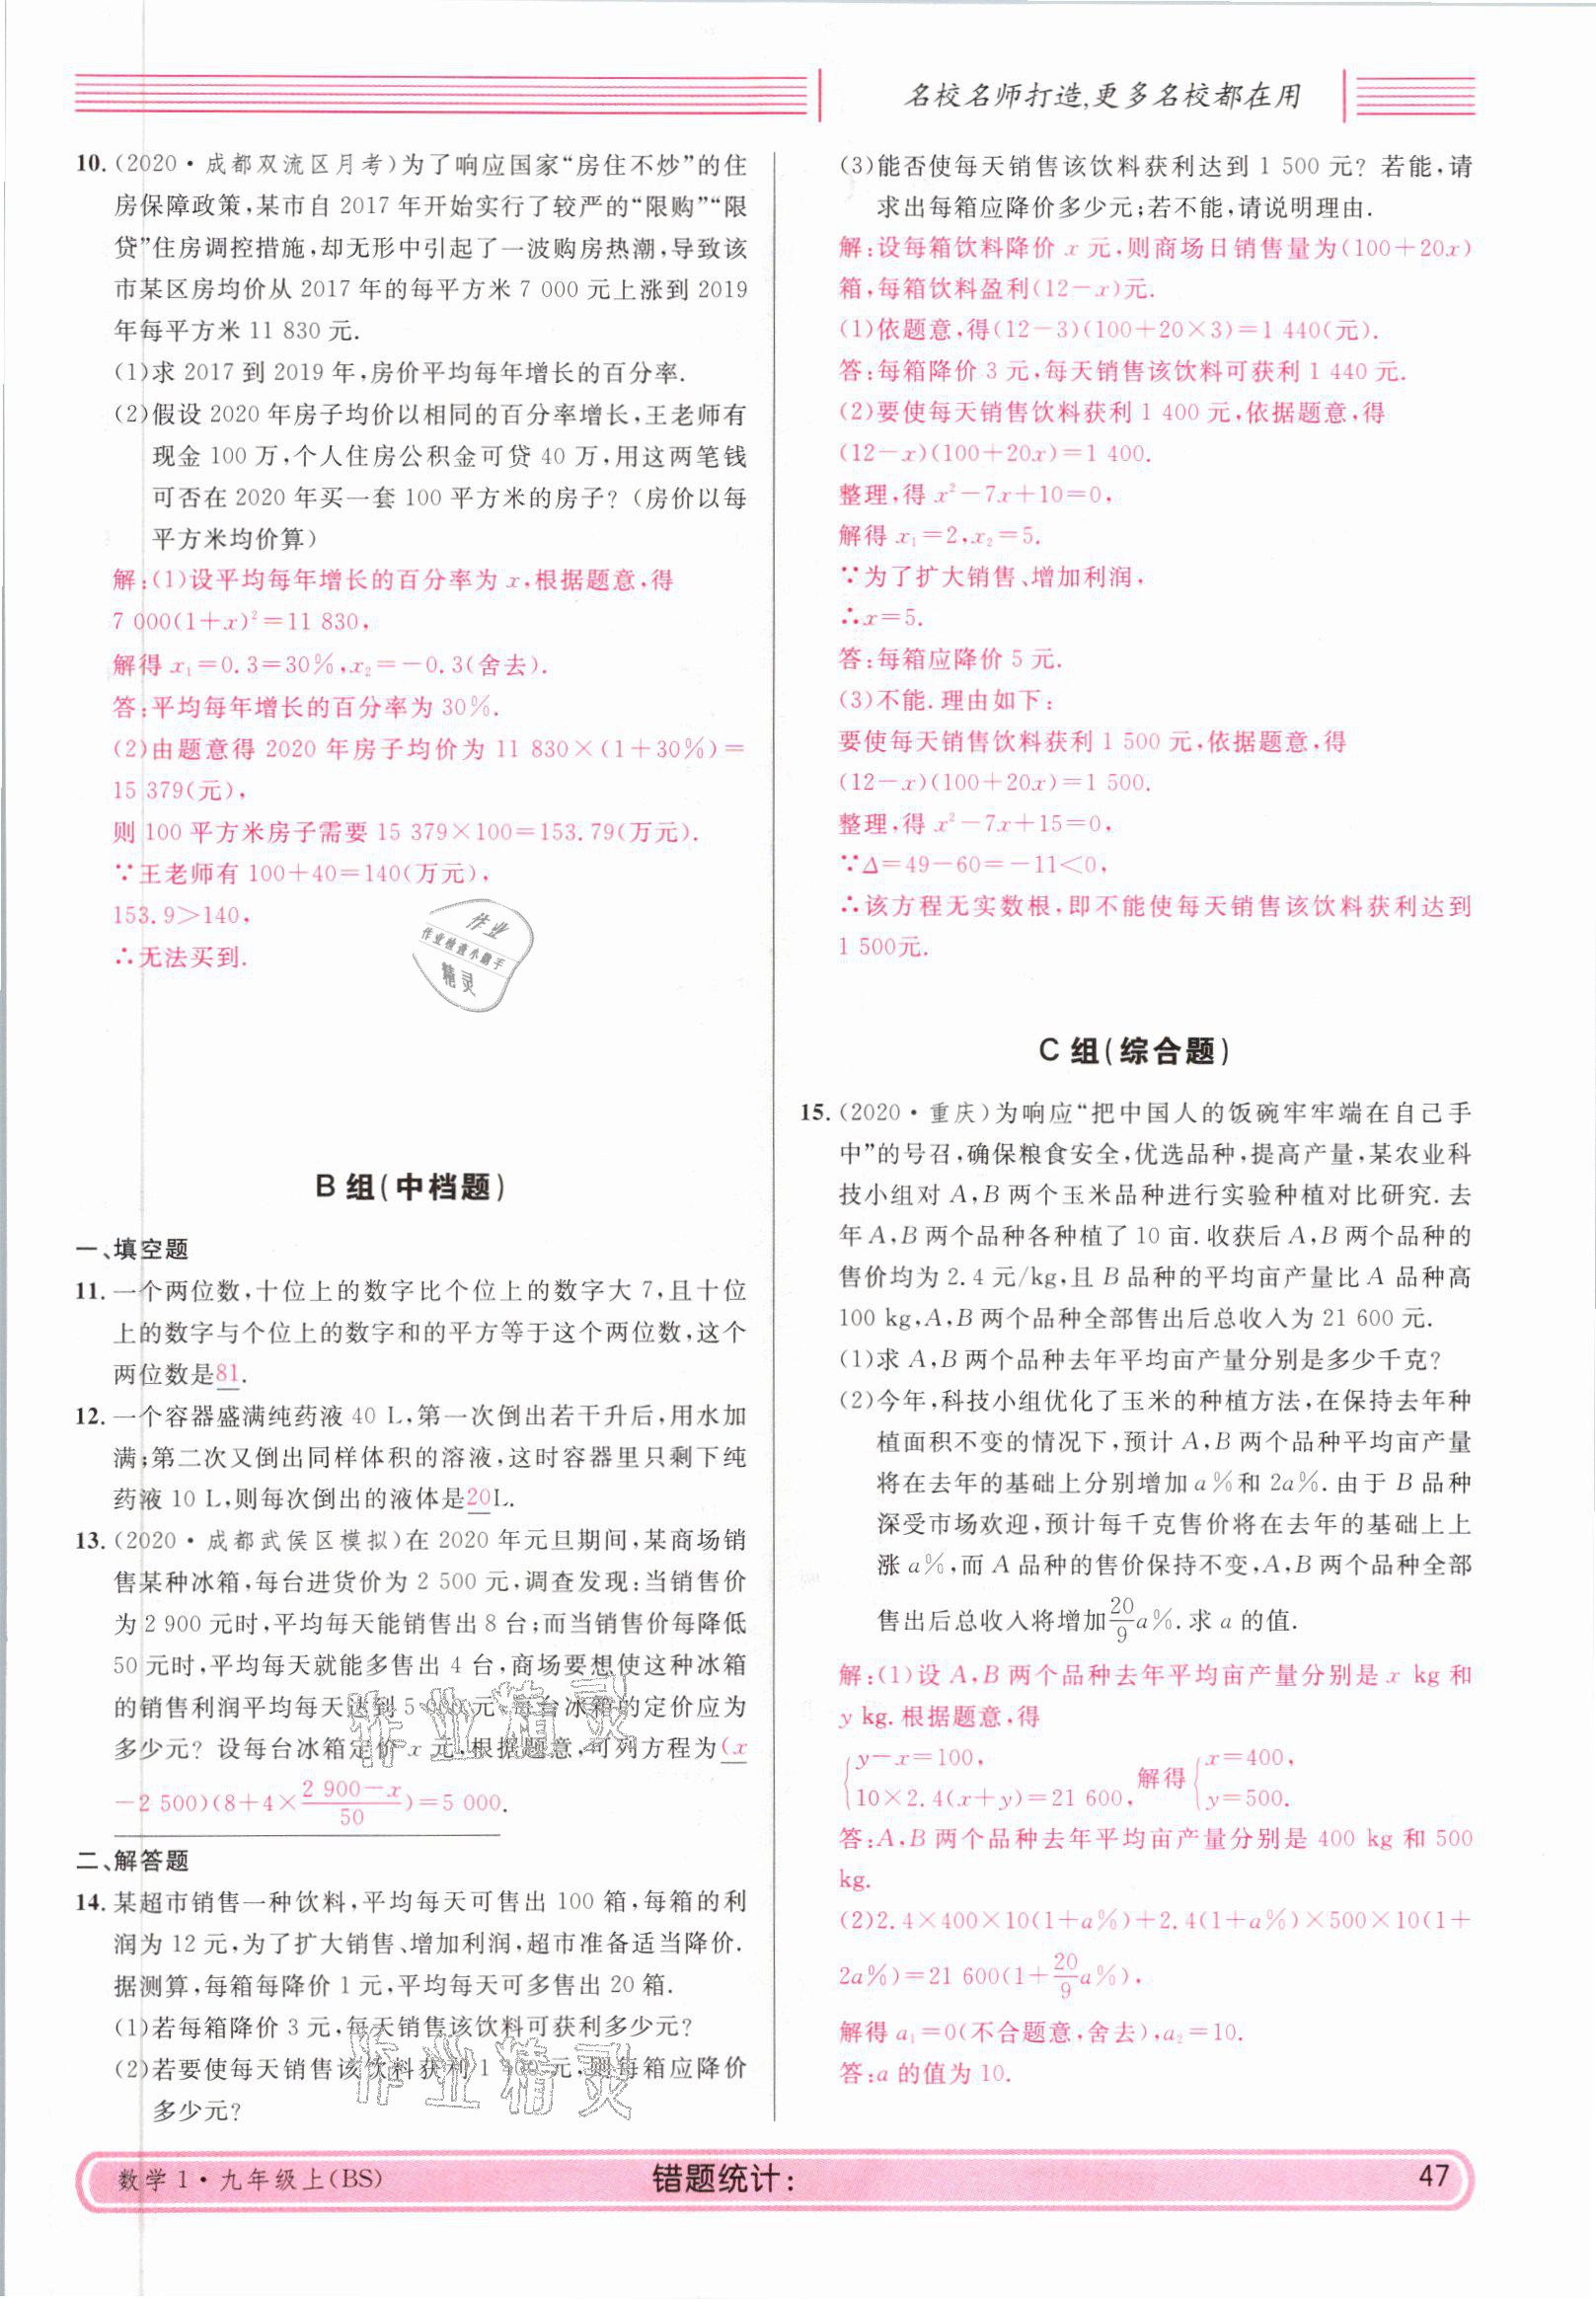 名校名师打造,更多名校都在用
10.(2020·成都双流区月考)为了响应国家“房住不炒”的住
房保障政策,某市自 2017 年开始实行了较严的“限购”“限
贷”住房调控措施,却无形中引起了一波购房热潮,导致该
市某区房均价从 2017 年的每平方米 7 000 元上涨到 2019
年每平方米 11 830 元.
(1)求 2017 到 2019 年,房价平均每年增长的百分率.
(2)假设 2020 年房子均价以相同的百分率增长,王老师有
现金 100 万,个人住房公积金可贷 40 万,用这两笔钱
可否在 2020 年买一套 100 平方米的房子?(房价以每
平方米均价算)
解:(1)设平均每年增长的百分率为 x,根据题意,得
7 000(1+x)²=11 830,
解得 x₁=0.3=30%,x₂=-0.3(舍去).
答:平均每年增长的百分率为 30%.
(2)由题意得 2020 年房子均价为 11 830×(1+30%)=
15 379(元),
则 100 平方米房子需要 15 379×100=153.79(万元).
∵王老师有 100+40=140(万元),
153.9>140,
∴无法买到.
作业
作业检查小助手
精灵
B 组(中档题)
一、填空题
11.一个两位数,十位上的数字比个位上的数字大 7,且十位
上的数字与个位上的数字和的平方等于这个两位数,这个
两位数是81.
12.一个容器盛满纯药液 40 L,第一次倒出若干升后,用水加
满;第二次又倒出同样体积的溶液,这时容器里只剩下纯
药液 10 L,则每次倒出的液体是20L.
13.(2020·成都武侯区模拟)在 2020 年元旦期间,某商场销
售某种冰箱,每台进货价为 2 500 元,调查发现:当销售价
为 2 900 元时,平均每天能销售出 8 台;而当销售价每降低
50 元时,平均每天就能多售出 4 台,商场要想使这种冰箱
的销售利润平均每天达到 5 元,每台冰箱的定价应为
多少元? 设每台冰箱定价 x 元,根据题意,可列方程为(x
-2 500)(8+4×\frac{2 900-x}{50})=5 000.
作业精灵
二、解答题
14.某超市销售一种饮料,平均每天可售出 100 箱,每箱的利
润为 12 元,为了扩大销售、增加利润,超市准备适当降价.
据测算,每箱每降价 1 元,平均每天可多售出 20 箱.
(1)若每箱降价 3 元,每天销售该饮料可获利多少元?
(2)若要使每天销售该饮料获利 1 元,则每箱应降价
多少元?
作业精灵
(3)能否使每天销售该饮料获利达到 1 500 元? 若能,请
求出每箱应降价多少元;若不能,请说明理由.
解:设每箱饮料降价 x 元,则商场日销售量为(100+20x)
箱,每箱饮料盈利(12-x)元.
(1)依题意,得(12-3)(100+20×3)=1 440(元).
答:每箱降价 3 元,每天销售该饮料可获利 1 440 元.
(2)要使每天销售饮料获利 1 400 元,依据题意,得
(12-x)(100+20x)=1 400.
整理,得 x²-7x+10=0,
解得 x₁=2,x₂=5.
∵为了扩大销售、增加利润,
∴x=5.
答:每箱应降价 5 元.
(3)不能.理由如下:
要使每天销售饮料获利 1 500 元,依据题意,得
(12-x)(100+20x)=1 500.
整理,得 x²-7x+15=0,
∵Δ=49-60=-11<0,
∴该方程无实数根,即不能使每天销售该饮料获利达到
1 500元.
C 组(综合题)
15.(2020·重庆)为响应“把中国人的饭碗牢牢端在自己手
中”的号召,确保粮食安全,优选品种,提高产量,某农业科
技小组对 A,B 两个玉米品种进行实验种植对比研究.去
年 A,B 两个品种各种植了 10 亩.收获后 A,B 两个品种的
售价均为 2.4 元/kg,且 B 品种的平均亩产量比 A 品种高
100 kg,A,B 两个品种全部售出后总收入为 21 600 元.
(1)求 A,B 两个品种去年平均亩产量分别是多少千克?
(2)今年,科技小组优化了玉米的种植方法,在保持去年种
植面积不变的情况下,预计 A,B 两个品种平均亩产量
将在去年的基础上分别增加 a%和 2a%.由于 B 品种
深受市场欢迎,预计每千克售价将在去年的基础上上
涨 a%,而 A 品种的售价保持不变,A,B 两个品种全部
售出后总收入将增加\frac{20}{9}a%.求 a 的值.
解:(1)设 A,B 两个品种去年平均亩产量分别是 x kg 和
y kg.根据题意,得
{y-x=100, 10×2.4(x+y)=21 600, 解得 {x=400, y=500.
答:A,B 两个品种去年平均亩产量分别是 400 kg 和 500
kg.
(2)2.4×400×10(1+a%)+2.4(1+a%)×500×10(1+
2a%)=21 600(1+\frac{20}{9}a%),
解得 a₁=0(不合题意,舍去),a₂=10.
答:a 的值为 10.
数学 1·九年级上(BS)
错题统计:
47